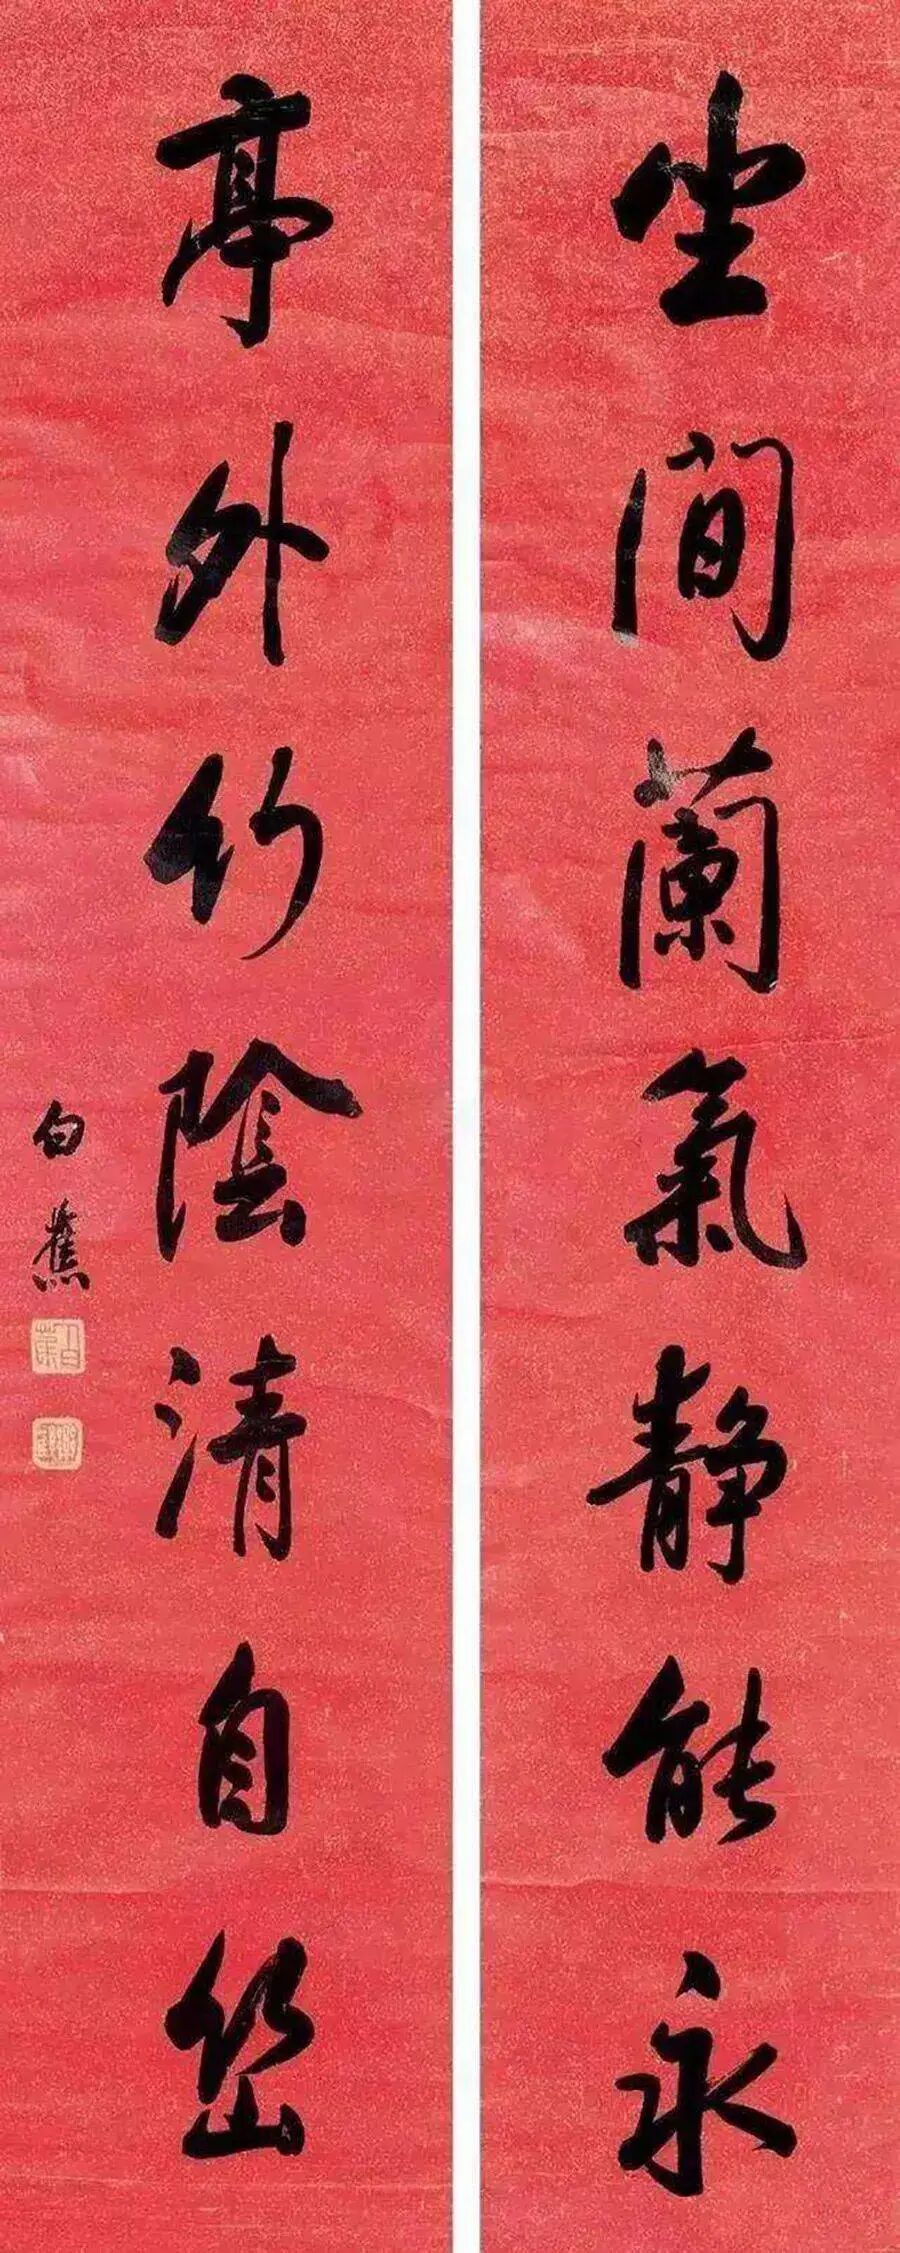 坐間蘭氣靜能永
亭外竹陰清自幽
白蕉
白蕉